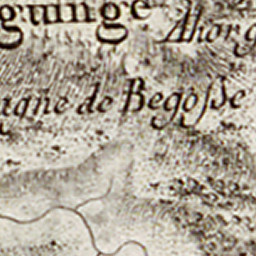 gringe Ahorg
agne de Begosse